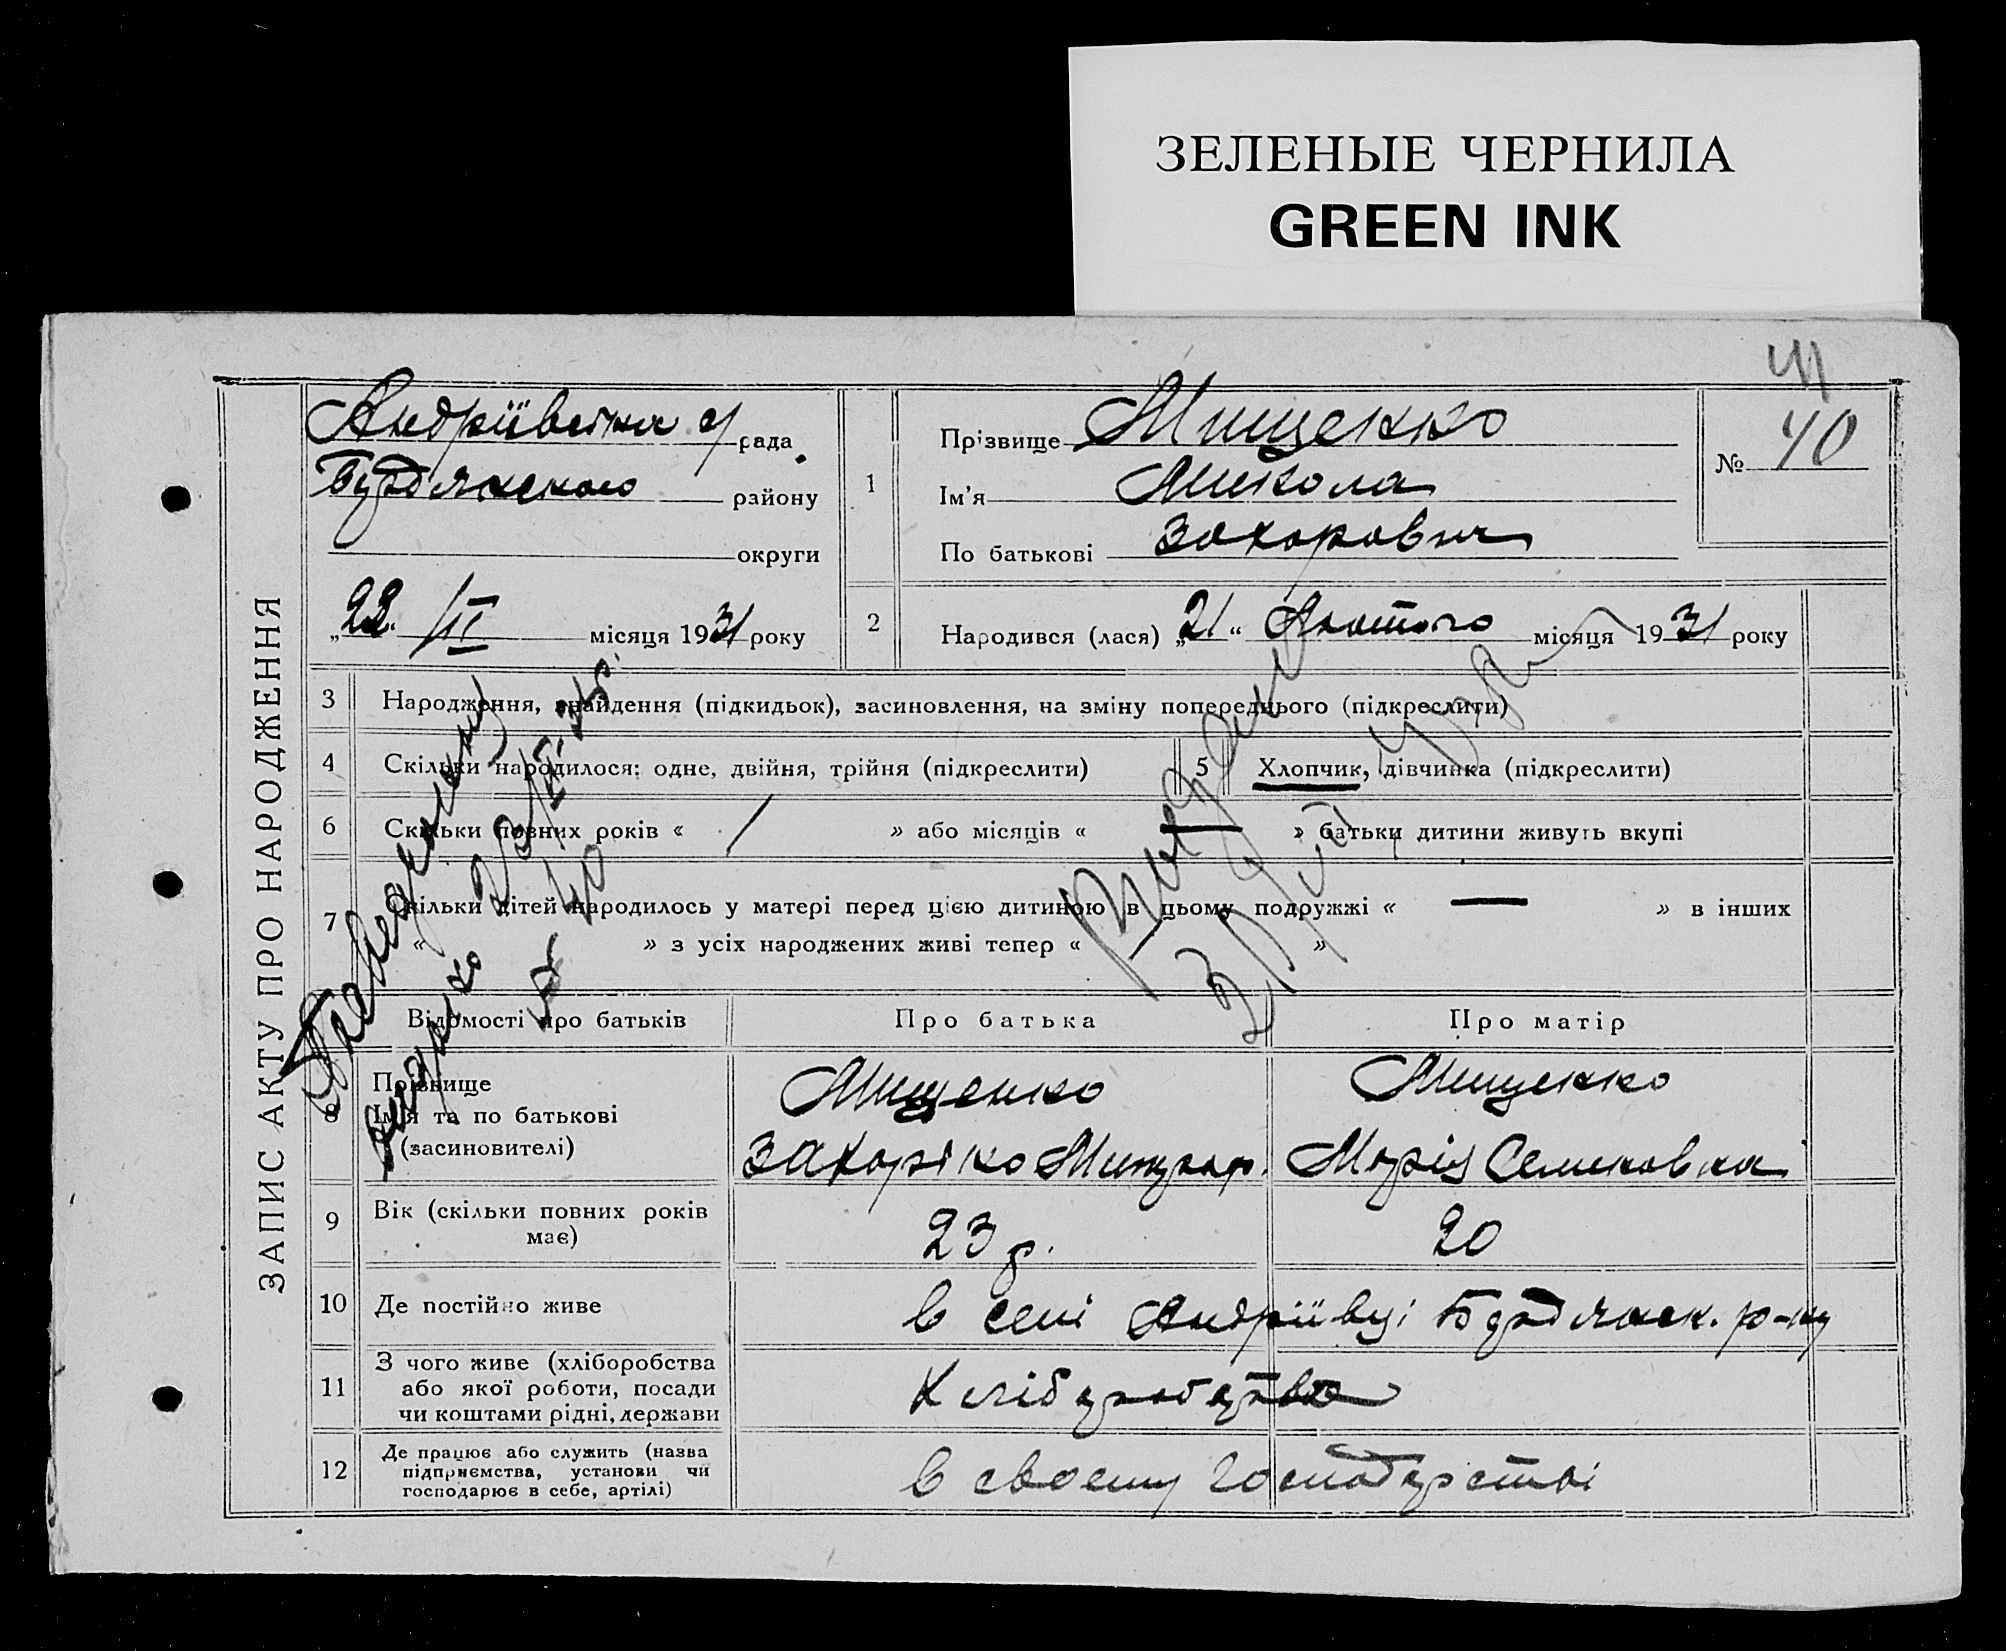 ЗЕЛЕНЫЕ ЧЕРНИЛА
GREEN INK
41
ЗАПИС АКТУ ПРО НАРОДЖЕННЯ
Андріївська с/рада
Бердянського району
округи
„22“ /II місяця 1931 року
1
Прізвище Мищенко
Ім'я Микола
По батькові Захарович
№ 40
2 Народився (лася) „21“ Лютого місяця 1931 року
3 Народження, знайдення (підкидьок), засиновлення, на зміну попереднього (підкреслити)
4 Скільки народилося: одне, двійня, трійня (підкреслити)
5 Хлопчик, дівчинка (підкреслити)
6 Скільки повних років « / » або місяців « — » батьки дитини живуть вкупі
7 Скільки дітей народилось у матері перед цією дитиною в цьому подружжі « — » в інших
« » з усіх народжених живі тепер « »
Відомості про батьків
Про батька
Про матір
8 Прізвище
Ім'я та по батькові
(засиновителі)
Мищенко
Захарко
Мищенко
Марія Семеновна
9 Вік (скільки повних років має)
23 р.
20
10 Де постійно живе
в селі Андріївці Бердянск. р-ну
11 З чого живе (хліборобства
або якої роботи, посади
чи коштами рідні, держави
Хліборобство
12 Де працює або служить (назва
підприємства, установи чи
господарює в себе, артілі)
в своєму господарстві
№ 40